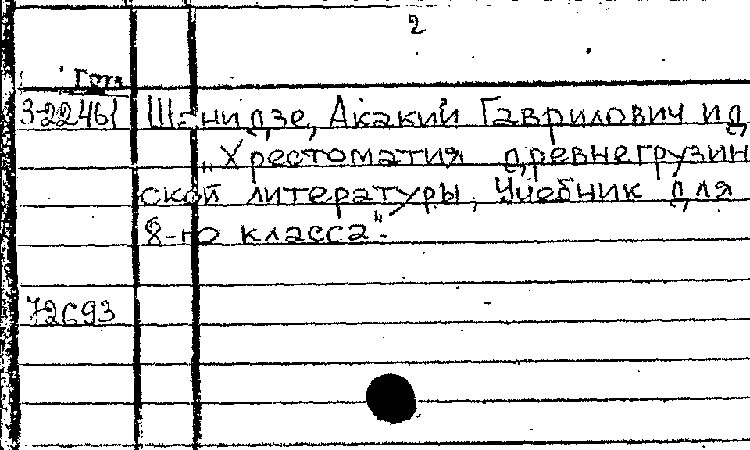 2
Груз.
3-22461 Шанидзе, Акакий Гаврилович и д
„Хрестоматия древнегрузин
ской литературы, Учебник для
8-го класса".
72693